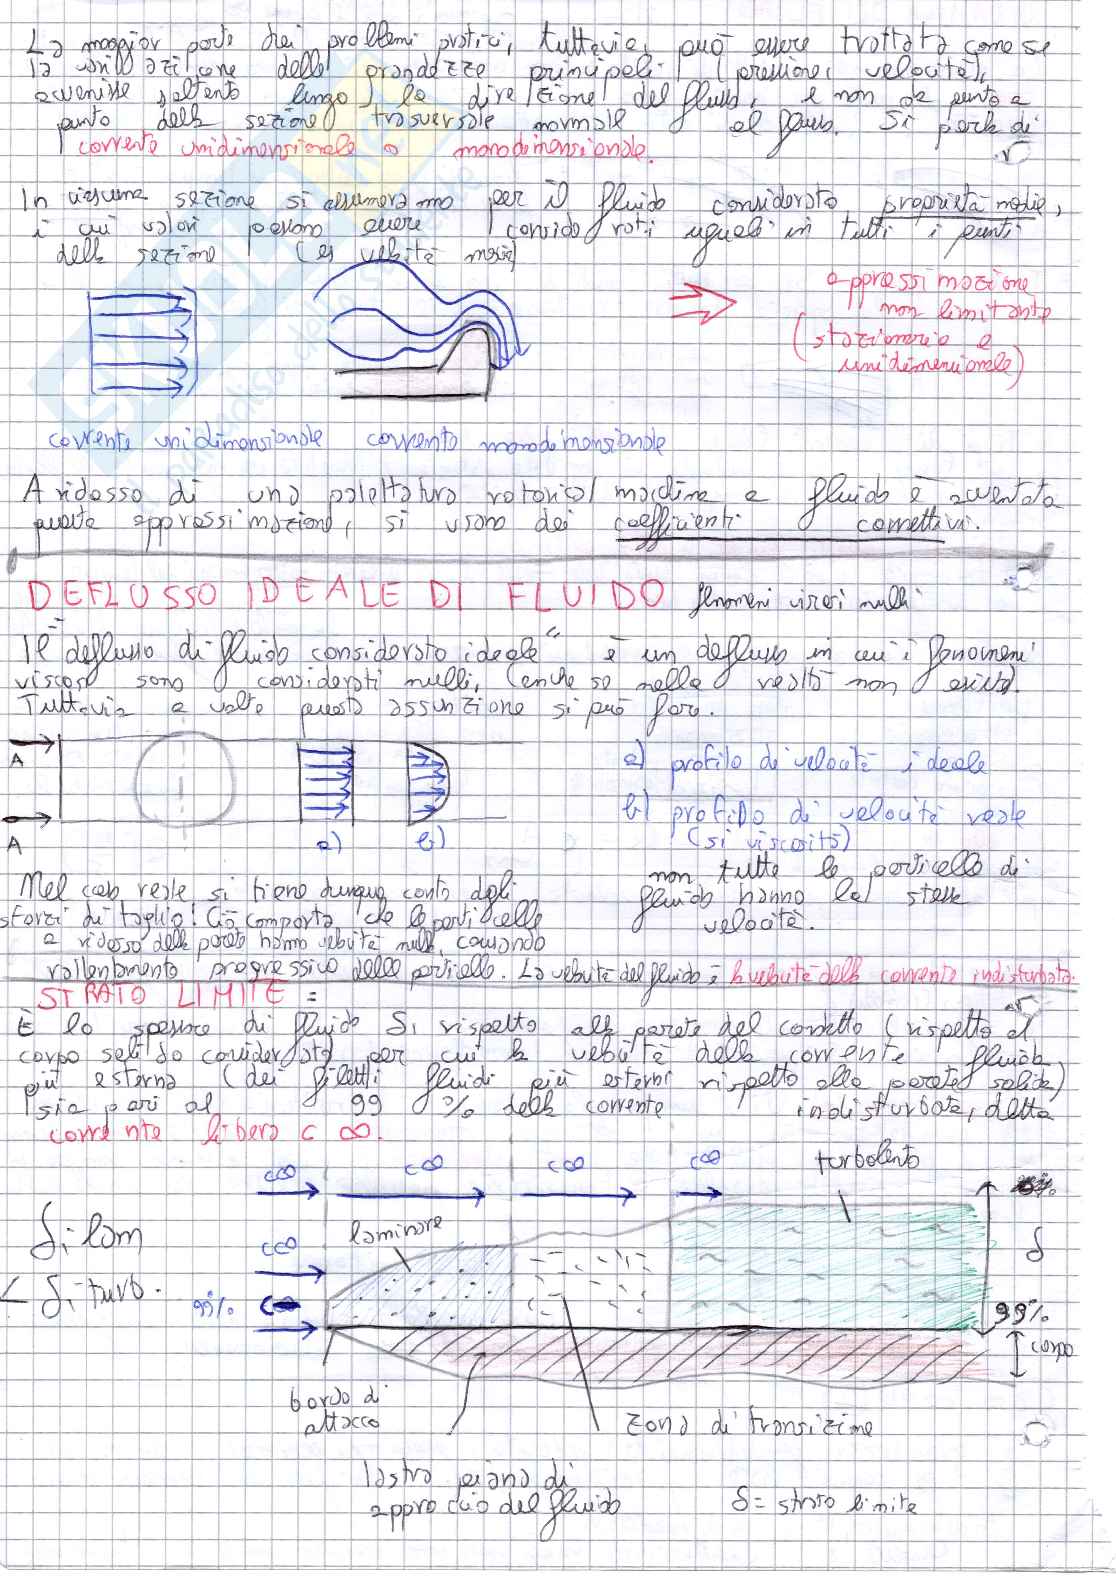 La maggior parte dei problemi pratici, tuttavia, può essere trattata come se
la variazione delle grandezze principali (pressione, velocità),
avvenisse soltanto lungo la direzione del flusso, e non da punto a
punto della sezione trasversale normale al flusso. Si parla di
corrente unidimensionale o monodimensionale.
In ciascuna sezione si assumeranno per il fluido considerato proprietà medie,
i cui valori possono essere considerati uguali in tutti i punti
della sezione (es velocità media)
approssimazione
non limitante
(stazionario e
unidimensionale)
corrente unidimensionale corrente monodimensionale
A ridosso di una palettatura rotorica/macchina a fluido è
questa approssimazione, si usano dei coefficienti correttivi.
DEFLUSSO IDEALE DI FLUIDO fenomeni viscosi nulli
Il "deflusso di fluido considerato ideale" è un deflusso in cui i fenomeni
viscosi sono considerati nulli, (anche se nella realtà non esiste).
Tuttavia a volte questa assunzione si può fare.
A
A
a) b)
a) profilo di velocità ideale
b) profilo di velocità reale
(si viscosità)
non tutte le particelle di
fluido hanno la stessa
velocità.
Nel caso reale si tiene dunque conto degli
sforzi di taglio! Ciò comporta che le particelle
a ridosso della parete hanno velocità nulla, causando
rallentamento progressivo delle particelle. La velocità del fluido è la velocità della corrente indisturbata.
STRATO LIMITE =
È lo spessore di fluido S, rispetto alla parete del condotto (rispetto al
corpo solido considerato) per cui la velocità della corrente fluida
più esterna (dei filetti fluidi più esterni rispetto alla parete solida)
sia pari al 99 % della corrente indisturbata, detta
corrente libera c ∞.
c∞ c∞ c∞ c∞ turbolento
δ, lam
< δ, turb.
c∞
laminare
δ
99% c∞
99%
corpo
bordo di
attacco
zona di transizione
lastra piana di
approccio del fluido
δ = strato limite